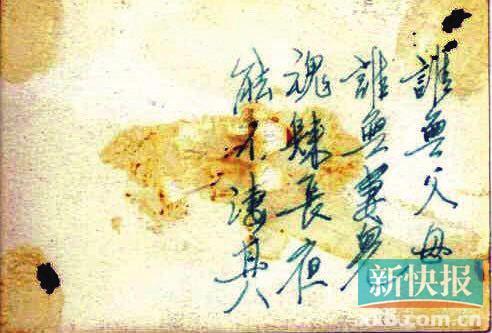 誰無父母
誰無妻兒
魂歸長夜
能不淒其
新快报
xkb.com.cn